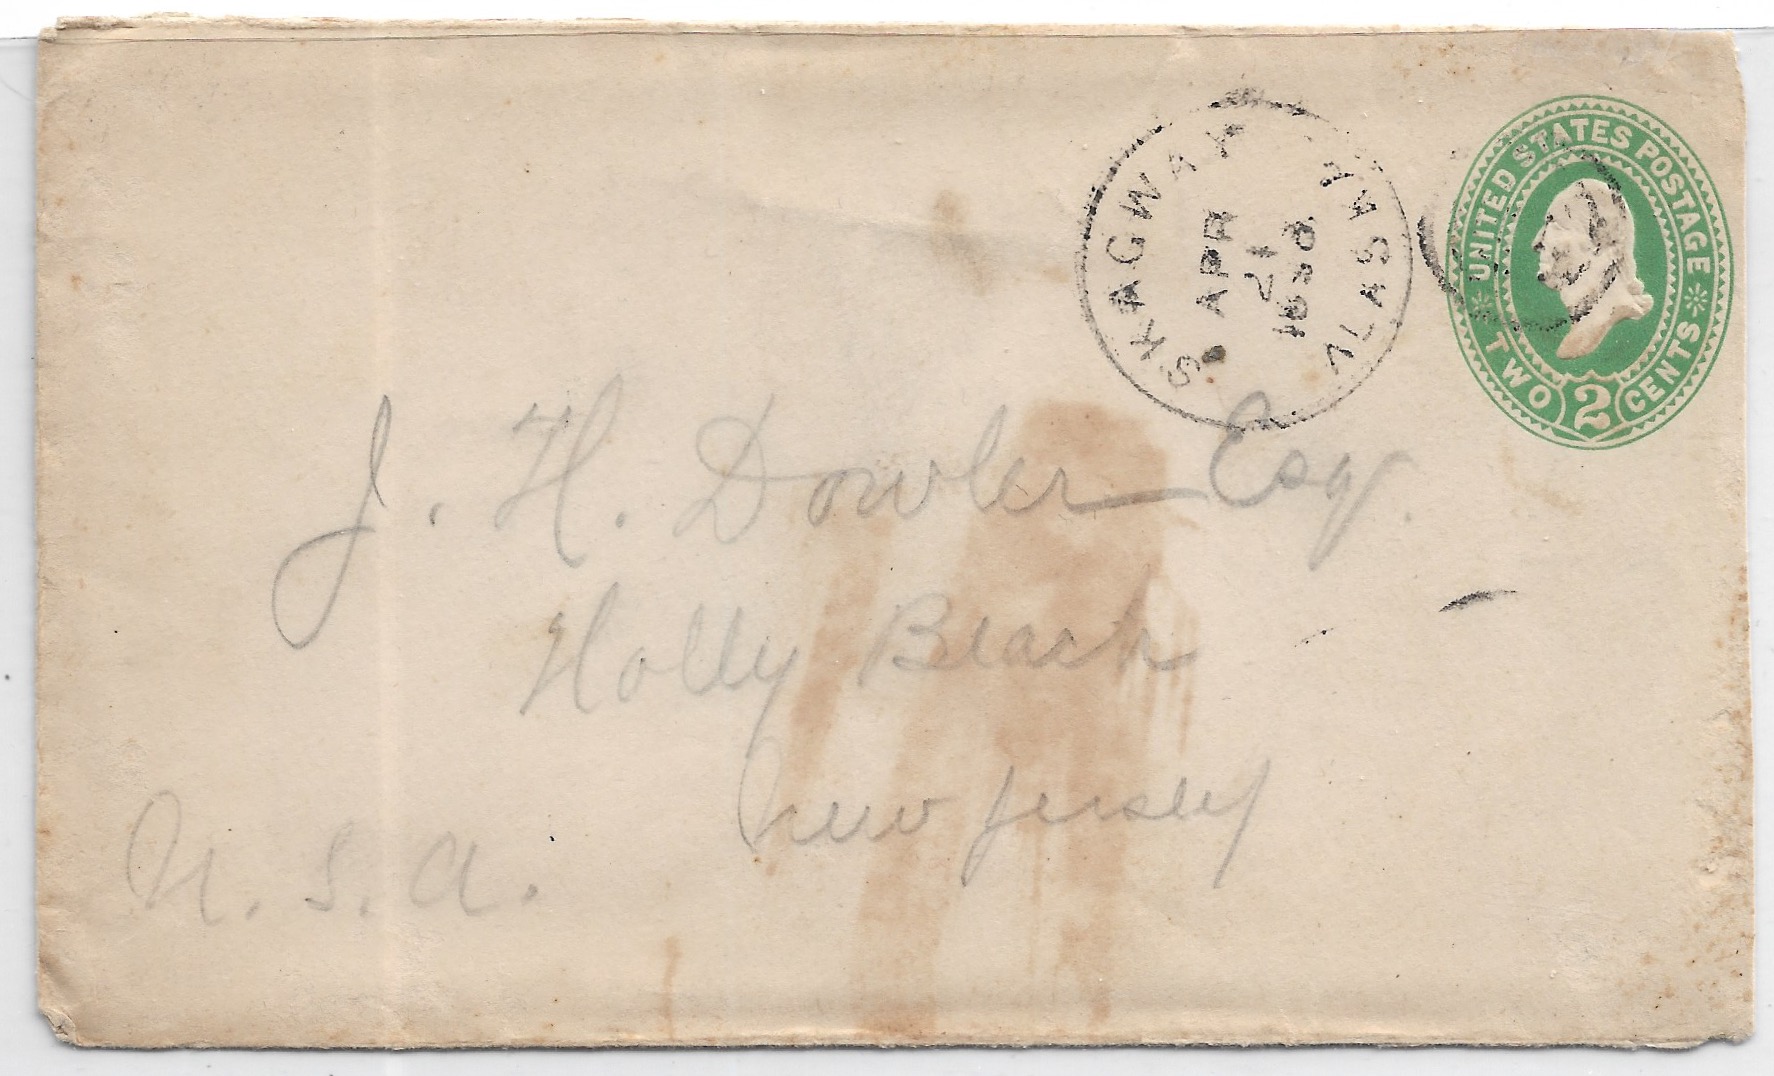 SKAGWAY ALASKA
APR
21
1898
UNITED STATES POSTAGE
TWO 2 CENTS
J. H. Dowler Esq.
Holly Beach
New Jersey
U. S. A.